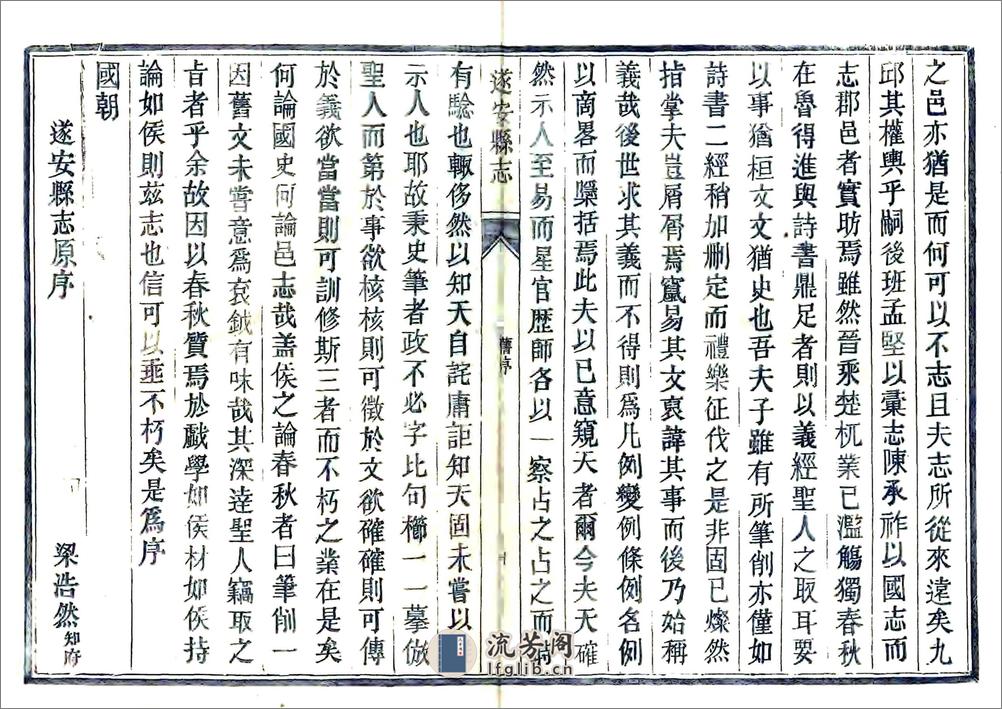 之邑亦猶是而何可以不志且夫志所從來遠矣九
邱其權輿乎嗣後班孟堅以彙志陳承祚以國志而
志郡邑者實昉焉雖然晉乘楚杌業已濫觴獨春秋
在魯得進與詩書鼎足者則以義經聖人之取耳要
以事猶桓文文猶史也吾夫子雖有所筆削亦僅如
詩書二經稍加刪定而禮樂征伐之是非固已燦然
指掌夫豈屑屑焉竄易其文哀諱其事而後乃始稱
義哉後世求其義而不得則為凡例變例條例名例
以商畧而櫽括焉此夫以已意窺天者爾今夫天確
然示人至易而星官歷師各以一察占之占之而
遂安縣志
舊序
有驗也輙侈然以知天自詫庸詎知天固未嘗以
示人也耶故秉史筆者政不必字比句櫛一一摹倣
聖人而第於事欲核核則可徵於文欲確確則可傳
於義欲當當則可訓修斯三者而不朽之業在是矣
何論國史何論邑志哉盖侯之論春秋者曰筆削一
因舊文未嘗意為袞鉞有味哉其深達聖人竊取之
旨者乎余故因以春秋質焉於戲學如侯材如侯持
論如侯則茲志也信可以垂不朽矣是為序
國朝
遂安縣志原序
梁浩然知府
流芳阁
lfglib.cn